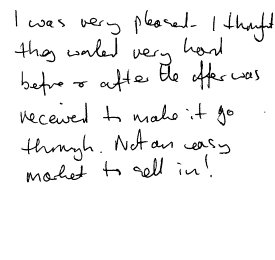 I was very pleased - I thought
they worked very hard
before & after the offer was
received to make it go
through. Not an easy
market to sell in!